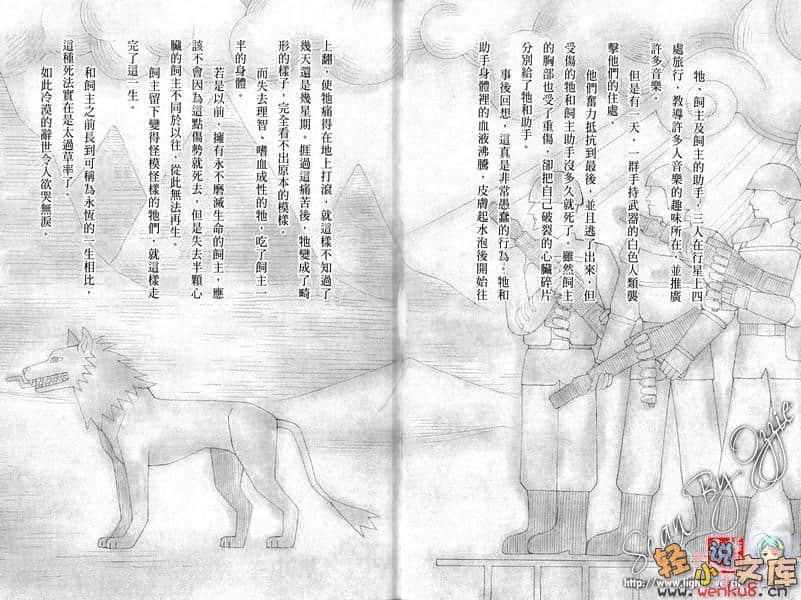 牠、飼主及飼主的助手，三人在行星上四
處旅行，教導許多人音樂的趣味所在，並推廣
許多音樂。
但是有一天，一群手持武器的白色人類襲
擊他們的住處。
他們奮力抵抗到最後，並且逃了出來，但
受傷的牠和飼主助手沒多久就死了。雖然飼主
的胸部也受了重傷，卻把自己破裂的心臟碎片
分別給了牠和助手。
事後回想，這真是非常愚蠢的行為。牠和
助手身體裡的血液沸騰，皮膚起水泡後開始往
上翻，使牠痛得在地上打滾，就這樣不知過了
幾天還是幾星期。捱過這痛苦後，牠變成了畸
形的樣子，完全看不出原本的模樣。
而失去理智、嗜血成性的牠，吃了飼主一
半的身體。
若是以前，擁有永不磨滅生命的飼主，應
該不會因為這點傷勢就死去，但是失去半顆心
臟的飼主不同於以往，從此無法再生。
飼主留下變得怪模怪樣的牠們，就這樣走
完了這一生。
和飼主之前長到可稱為永恆的一生相比，
這種死法實在是太過草率了。
如此冷漠的辭世令人欲哭無淚。
Scan By Ozzie
轻小说文库
www.wenku8.cn